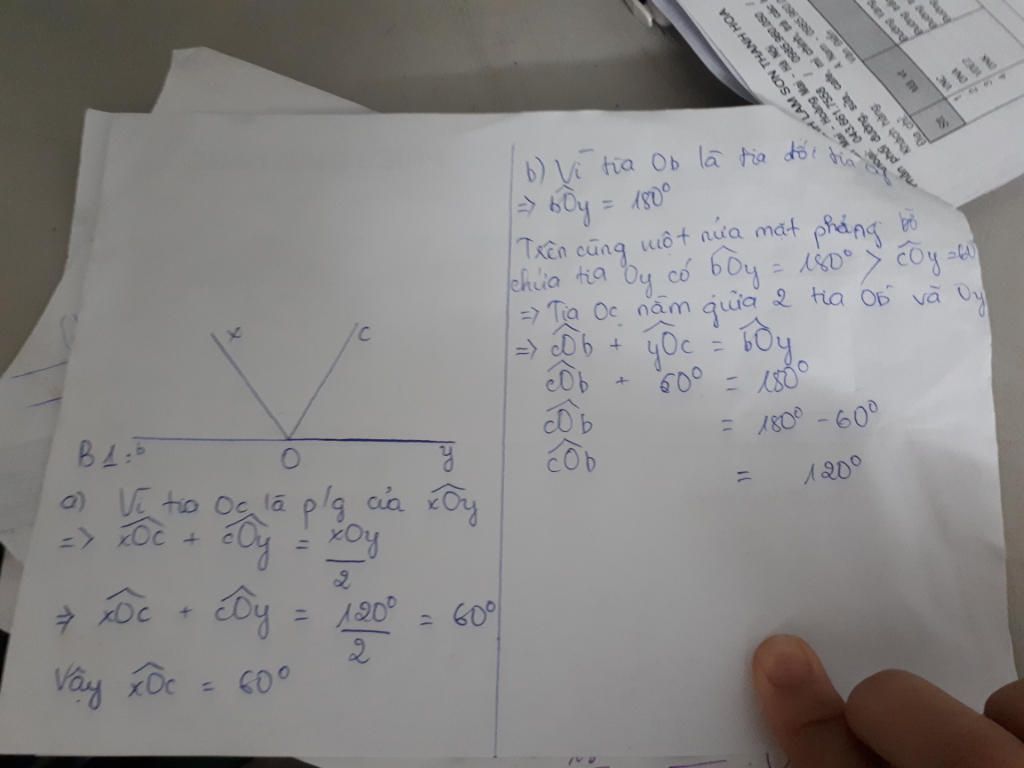 x c
B1: b O y
a) Vì tia Oc là p/g của xÔy
=> xÔc + cÔy = xOy/2
=> xÔc + cÔy = 120°/2 = 60°
Vậy xÔc = 60°
b) Vì tia Ob là tia đối tia Oy
=> bÔy = 180°
Trên cùng một nửa mặt phẳng bờ
chứa tia Oy có bÔy = 180° > cÔy = 60
=> Tia Oc nằm giữa 2 tia Ob và Oy
=> cÔb + yÔc = bÔy
cÔb + 60° = 180°
cÔb = 180° - 60°
cÔb = 120°
LAM SON THANH HOA